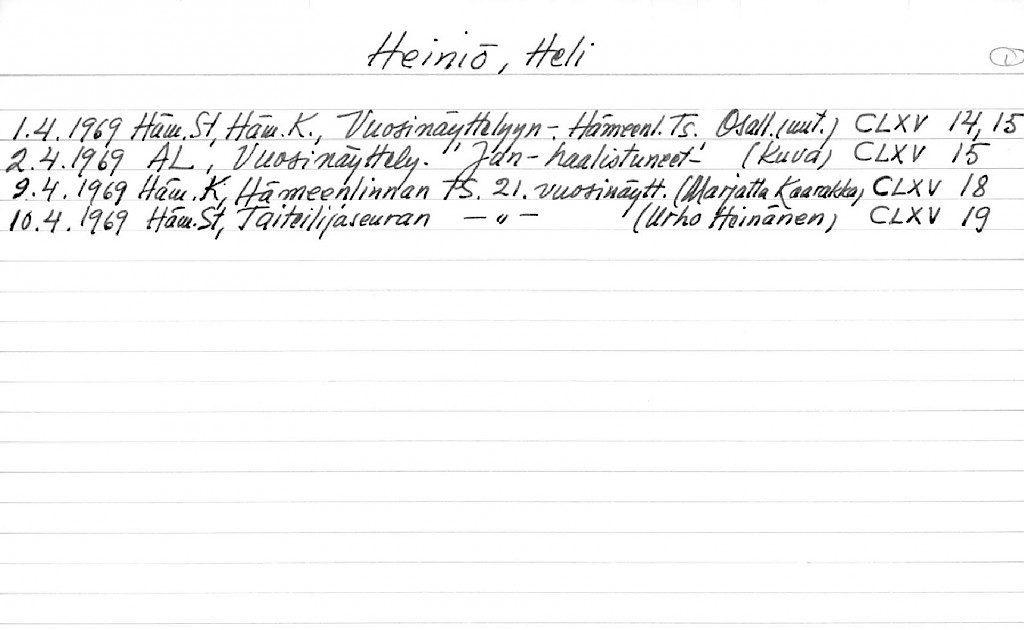 Heiniö, Heli
1
1.4.1969 Häm.St, Häm.K., Vuosinäyttelyyn-, Hämeenl. Ts. Osall. (uut.) CLXV 14,15
2.4.1969 AL, Vuosinäyttely. "Jän-haalistuneet-" (Kuva) CLXV 15
9.4.1969 Häm.K, Hämeenlinnan TS. 21. vuosinäytt. (Marjatta Kaarakka) CLXV 18
10.4.1969 Häm.St, Taiteilijaseuran —"— (Urho Heinänen) CLXV 19